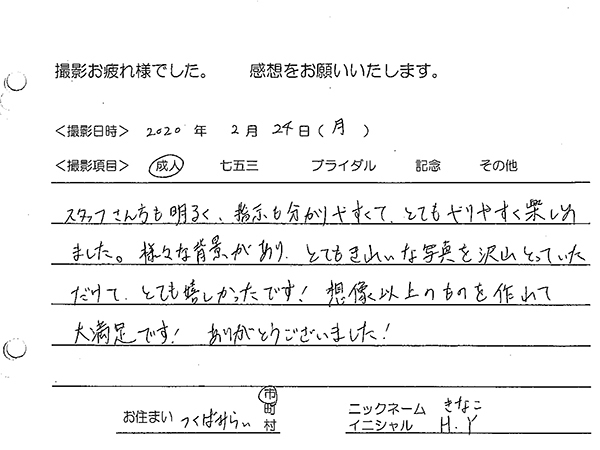 撮影お疲れ様でした。 感想をお願いいたします。
＜撮影日時＞ 2020 年 2 月 24 日 ( 月 )
＜撮影項目＞ 成人 七五三 ブライダル 記念 その他
スタッフさん方も明るく、指示も分かりやすくて、とてもやりやすく楽しめ
ました。様々な背景があり、とてもきれいな写真を沢山とっていた
だけて、とても嬉しかったです！ 想像以上のものを作れて
大満足です！ ありがとうございました！
お住まい つくばみらい 市 町 村
ニックネーム きなこ
イニシャル H.Y